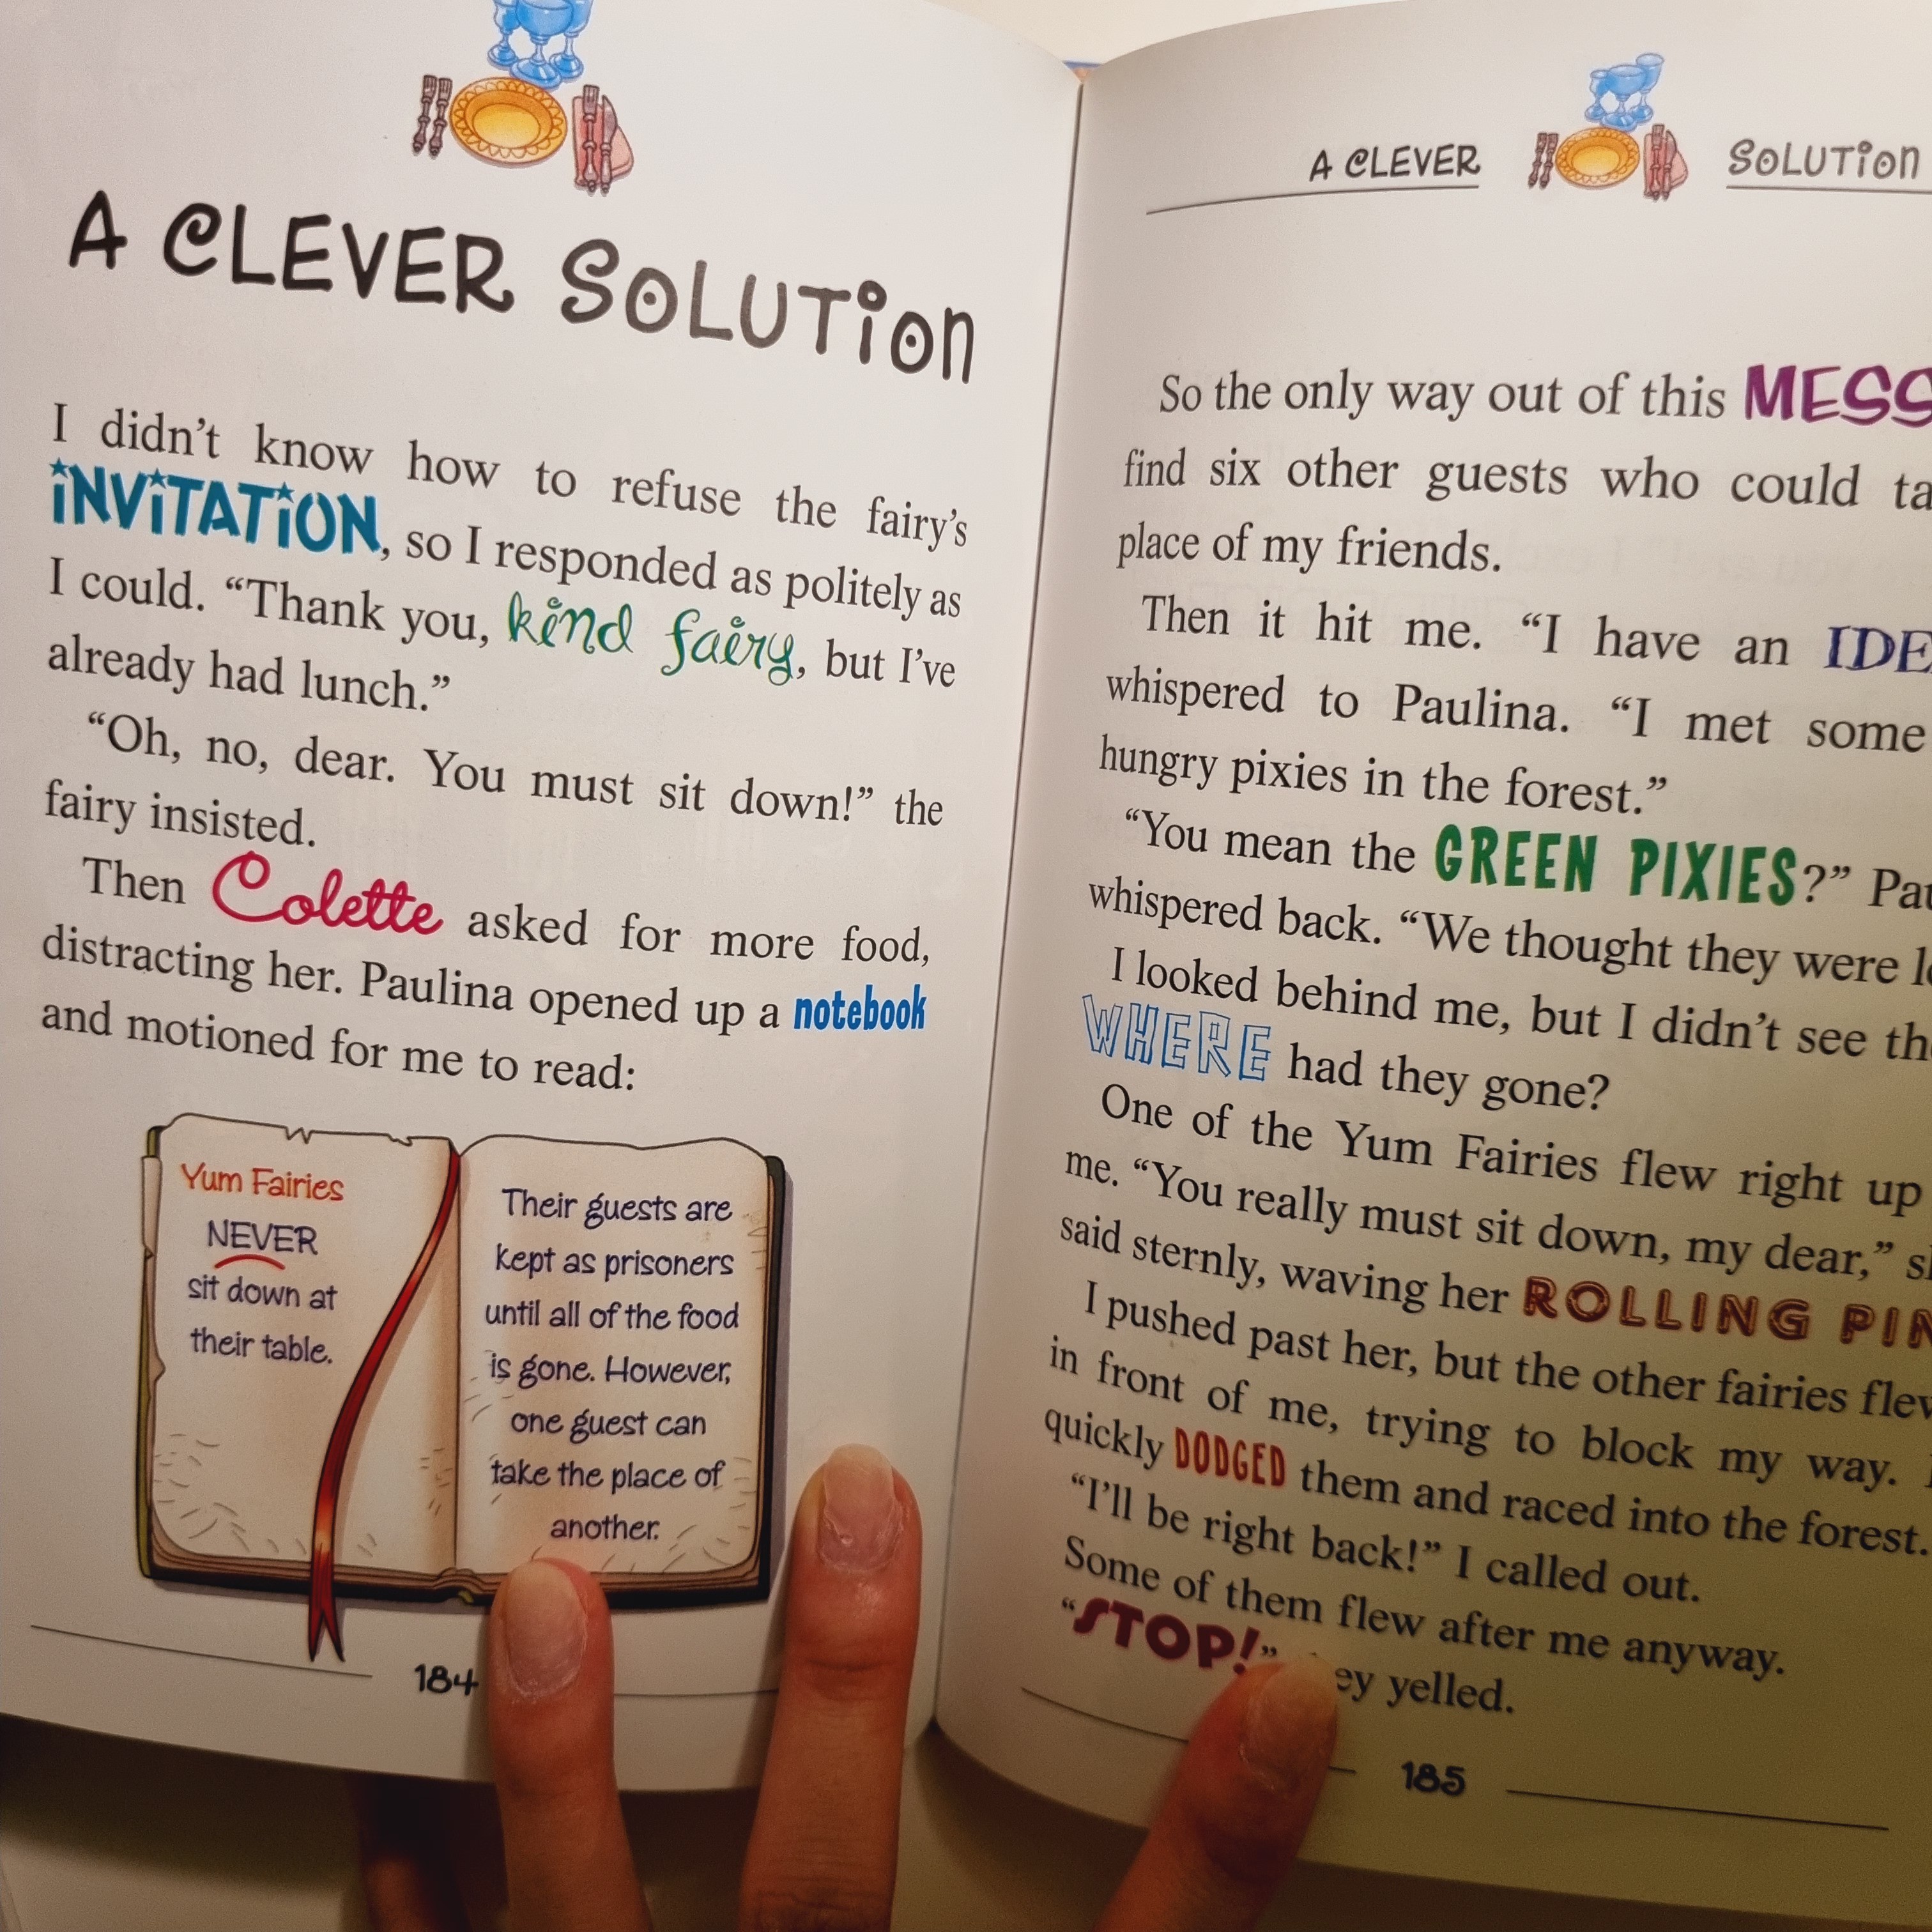 A CLEVER SOLUTION
I didn't know how to refuse the fairy's
INVITATION, so I responded as politely as
I could. “Thank you, kind fairy, but I've
already had lunch.”
“Oh, no, dear. You must sit down!” the
fairy insisted.
Then Colette asked for more food,
distracting her. Paulina opened up a notebook
and motioned for me to read:
Yum Fairies
NEVER
sit down at
their table.
Their guests are
kept as prisoners
until all of the food
is gone. However,
one guest can
take the place of
another.
184
A CLEVER SOLUTION
So the only way out of this MESS
find six other guests who could
place of my friends.
Then it hit me. “I have an
whispered to Paulina. “I met some
hungry pixies in the forest.”
“You mean the GREEN PIXIES?”
whispered back. “We thought they were
I looked behind me, but I didn't see
WHERE had they gone?
One of the Yum Fairies flew right up
me. “You really must sit down, my dear,”
said sternly, waving her ROLLING PIN
I pushed past her, but the other fairies flew
in front of me, trying to block my way.
quickly DODGED them and raced into the forest.
“I'll be right back!” I called out.
Some of them flew after me anyway.
“STOP!” yelled.
185